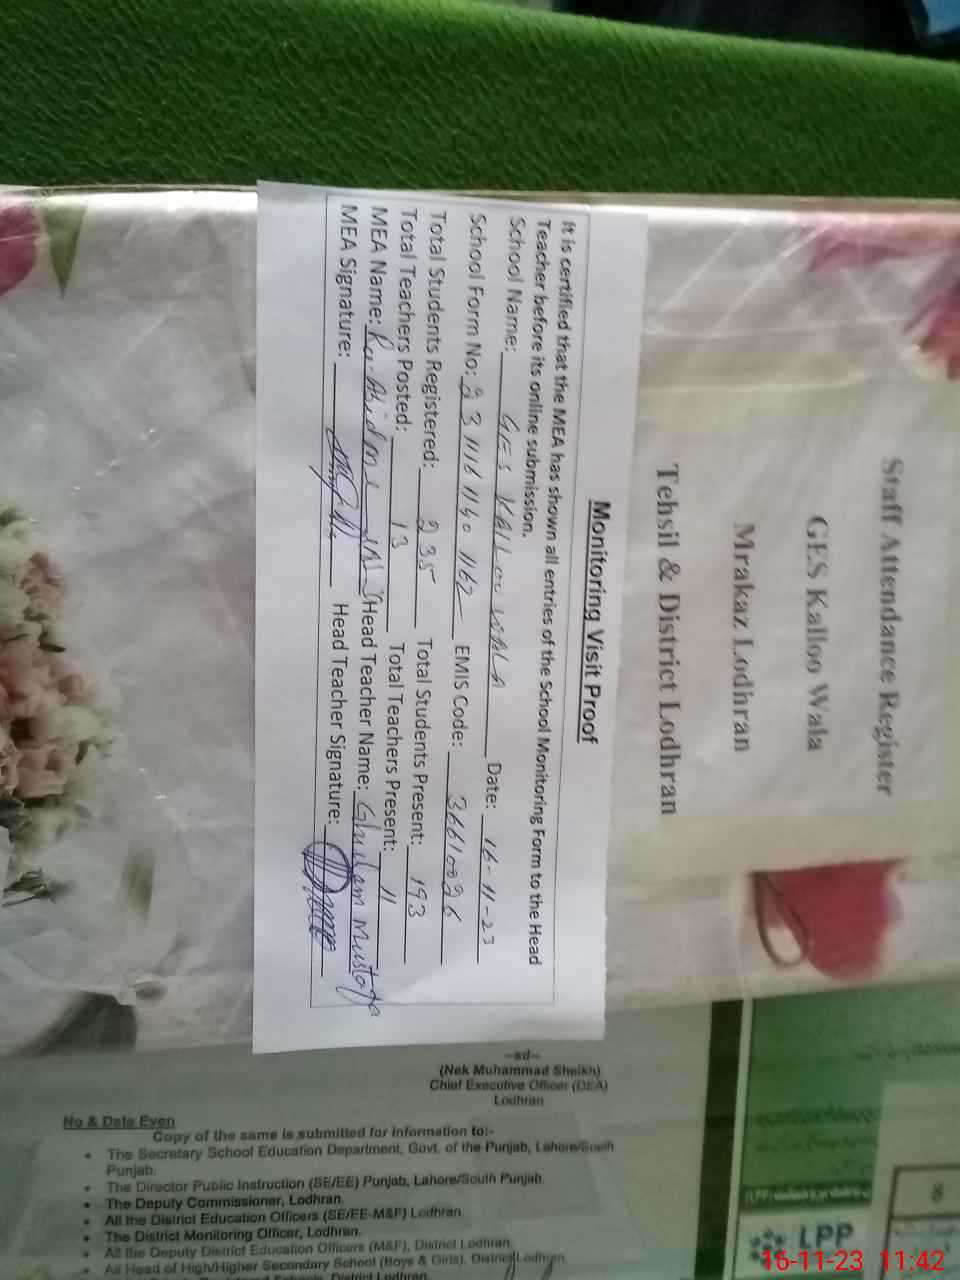 Staff Attendance Register
GES Kalloo Wala
Mrakaz Lodhran
Tehsil & District Lodhran
Monitoring Visit Proof
It is certified that the MEA has shown all entries of the School Monitoring Form to the Head
Teacher before its online submission.
School Name: GES KALLOO WALA Date: 16-11-23
School Form No: 231116 1140 1162 EMIS Code: 36610026
Total Students Registered: 235 Total Students Present: 193
Total Teachers Posted: 13 Total Teachers Present: 11
MEA Name: Head Teacher Name: Ghulam Mustafa
MEA Signature: Head Teacher Signature:
--sd--
(Nek Muhammad Sheikh)
Chief Executive Officer (DEA)
Lodhran
No & Date Even
Copy of the same is submitted for information to:-
• The Secretary School Education Department, Govt. of the Punjab, Lahore/South
Punjab.
• The Director Public Instruction (SE/EE) Punjab, Lahore/South Punjab.
• The Deputy Commissioner, Lodhran.
• All the District Education Officers (SE/EE-M&F) Lodhran.
• The District Monitoring Officer, Lodhran.
• All the Deputy District Education Officers (M&F), District Lodhran.
• All Head of High/Higher Secondary School (Boys & Girls), District Lodhran
Schools, District Lodhran.
8
LPP
16-11-23 11:42